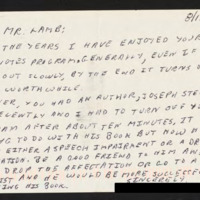 8/1
MR. LAMB:
THE YEARS I HAVE ENJOYED YOUR
PROGRAM. GENERALLY, EVEN IF
OUT SLOWLY, BY THE END IT TURNS
WORTHWHILE.
YOU HAD AN AUTHOR, JOSEPH STE
ECENTLY AND I HAD TO TURN OFF YOU
AM AFTER ABOUT TEN MINUTES, IT
TO DO WITH HIS BOOK BUT NOW
EITHER A SPEECH IMPAIRMENT OR A DR
ATION. BE A GOOD FRIEND TO HIM AN
DROP THIS AFFECTATION OR GO TO A
IST AND HE WOULD BE MORE SUCCESSF
ING HIS BOOK. SINCERELY